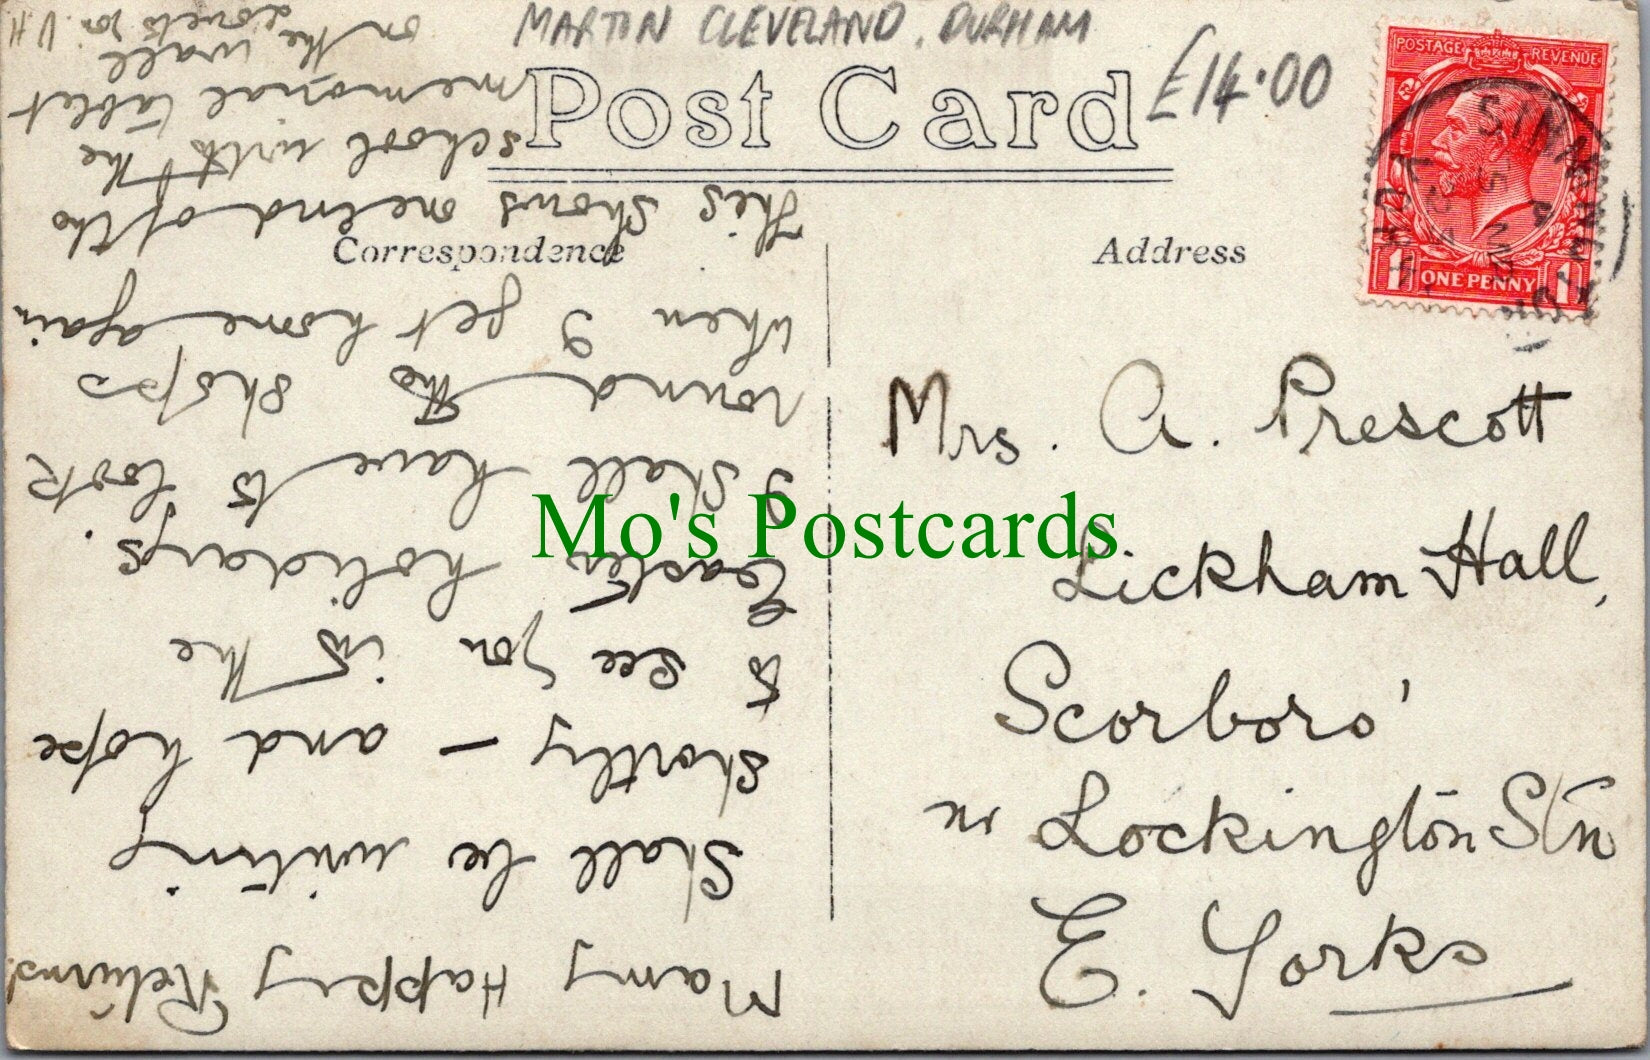 MARTON CLEVELAND, DURHAM
£14.00
Post Card
Correspondence
Address
POSTAGE REVENUE
ONE PENNY
Mo's Postcards
Mrs. A. Prescott
Lickham Hall,
Scorboro'
nr Lockington Stn
E. Yorks
Many Happy Returns!
Shall be writing
shortly – and hope
to see you in the
Easter holidays.
I shall have to look
round the shops
when I get home again
This shows one end of the
school with the
memorial tablet
on the wall
Love to you. V.H